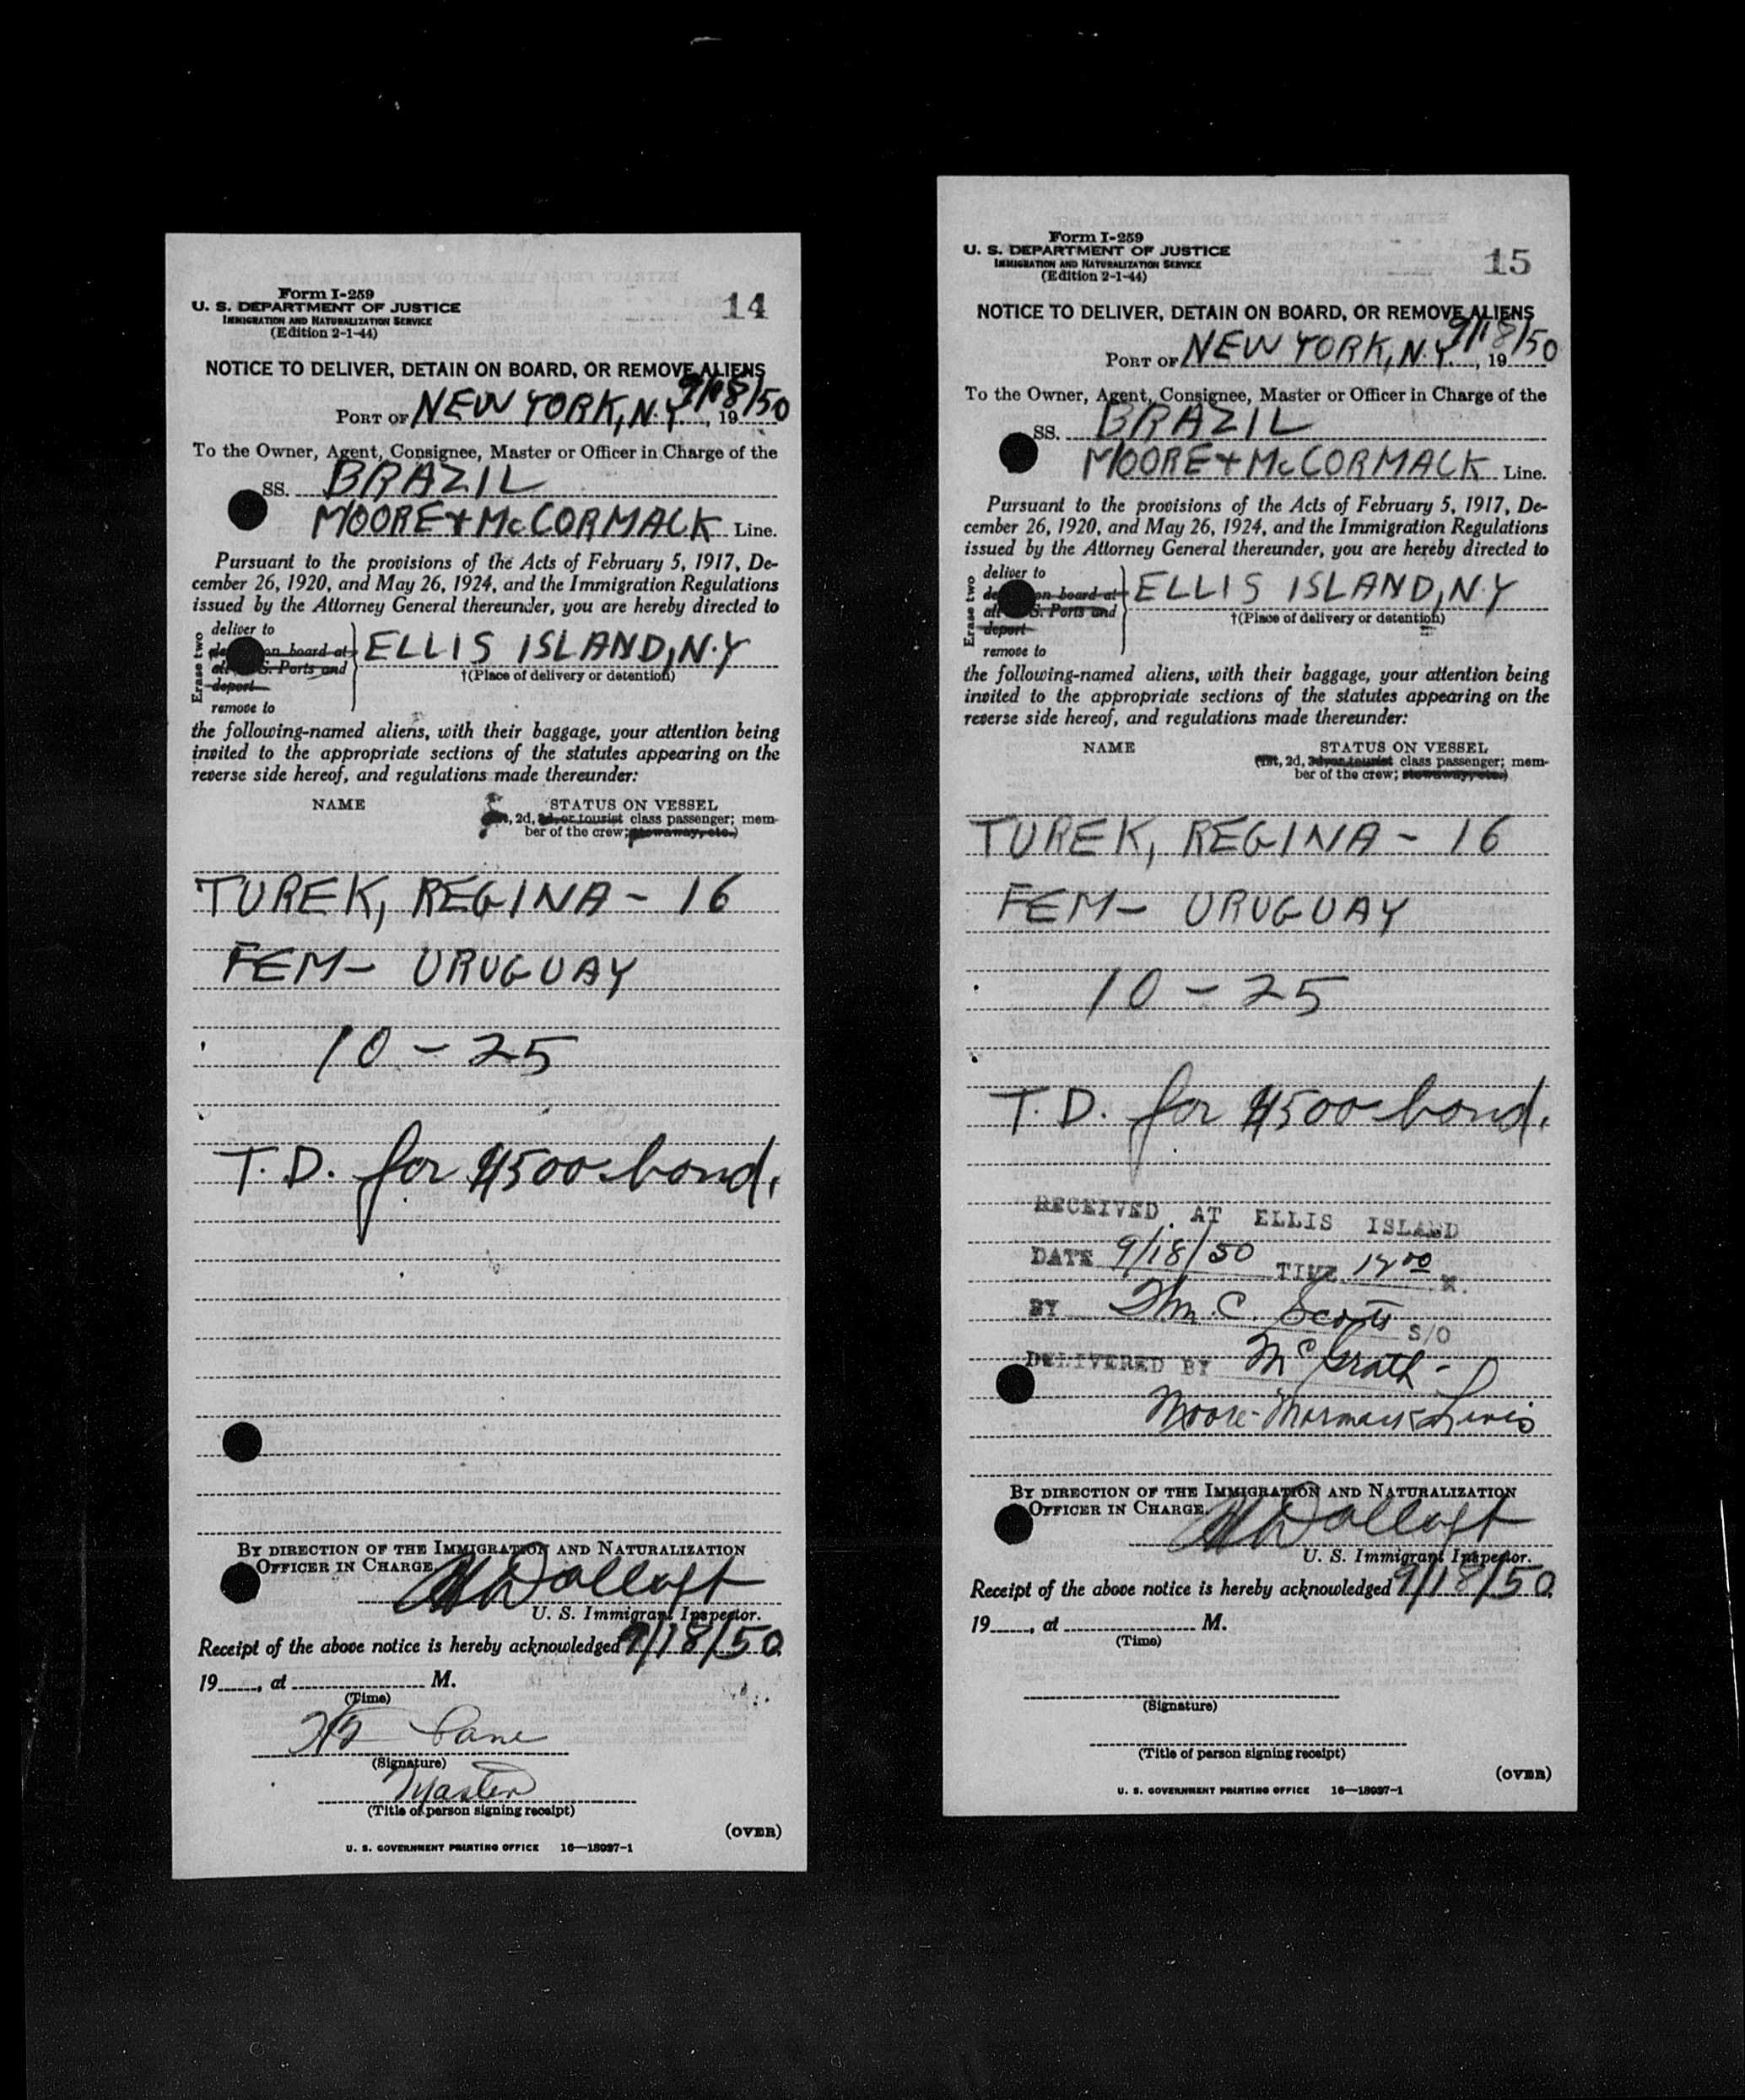 Form I-259
U. S. DEPARTMENT OF JUSTICE
IMMIGRATION AND NATURALIZATION SERVICE
(Edition 2-1-44)
14
NOTICE TO DELIVER, DETAIN ON BOARD, OR REMOVE ALIENS
PORT OF NEW YORK, N.Y. 9/18/50, 19
To the Owner, Agent, Consignee, Master or Officer in Charge of the
SS. BRAZIL
MOORE + McCORMACK Line.
Pursuant to the provisions of the Acts of February 5, 1917, De-
cember 26, 1920, and May 26, 1924, and the Immigration Regulations
issued by the Attorney General thereunder, you are hereby directed to
Erase two
deliver to
on board at
S. Ports and
deport
remove to
ELLIS ISLAND, N.Y
†(Place of delivery or detention)
the following-named aliens, with their baggage, your attention being
invited to the appropriate sections of the statutes appearing on the
reverse side hereof, and regulations made thereunder:
NAME STATUS ON VESSEL
, 2d, 3d, or tourist class passenger; mem-
ber of the crew; stowaway, etc.)
TUREK, REGINA - 16
FEM- URUGUAY
10 - 25
T.D. for $500 bond.
BY DIRECTION OF THE IMMIGRATION AND NATURALIZATION
OFFICER IN CHARGE
U. S. Immigrant Inspector.
Receipt of the above notice is hereby acknowledged 9/18/50
19, at M.
(Time)
Lane
(Signature)
Master
(Title of person signing receipt)
(OVER)
U. S. GOVERNMENT PRINTING OFFICE 16—18037-1
Form I-259
U. S. DEPARTMENT OF JUSTICE
IMMIGRATION AND NATURALIZATION SERVICE
(Edition 2-1-44)
15
NOTICE TO DELIVER, DETAIN ON BOARD, OR REMOVE ALIENS
PORT OF NEW YORK, N.Y. 9/18/50, 19
To the Owner, Agent, Consignee, Master or Officer in Charge of the
SS. BRAZIL
MOORE + McCORMACK Line.
Pursuant to the provisions of the Acts of February 5, 1917, De-
cember 26, 1920, and May 26, 1924, and the Immigration Regulations
issued by the Attorney General thereunder, you are hereby directed to
Erase two
deliver to
on board at
S. Ports and
deport
remove to
ELLIS ISLAND, N.Y
†(Place of delivery or detention)
the following-named aliens, with their baggage, your attention being
invited to the appropriate sections of the statutes appearing on the
reverse side hereof, and regulations made thereunder:
NAME STATUS ON VESSEL
(1st, 2d, 3d, or tourist class passenger; mem-
ber of the crew; stowaway, etc.)
TUREK, REGINA - 16
FEM- URUGUAY
10 - 25
T.D. for $500 bond.
RECEIVED AT ELLIS ISLAND
DATE 9/18/50 TIME 12 00 M.
BY C. Scott S/O
DELIVERED BY McGrath -
Moore-Mormack
BY DIRECTION OF THE IMMIGRATION AND NATURALIZATION
OFFICER IN CHARGE
U. S. Immigrant Inspector.
Receipt of the above notice is hereby acknowledged 9/18/50
19, at M.
(Time)
(Signature)
(Title of person signing receipt)
(OVER)
U. S. GOVERNMENT PRINTING OFFICE 16—18037-1